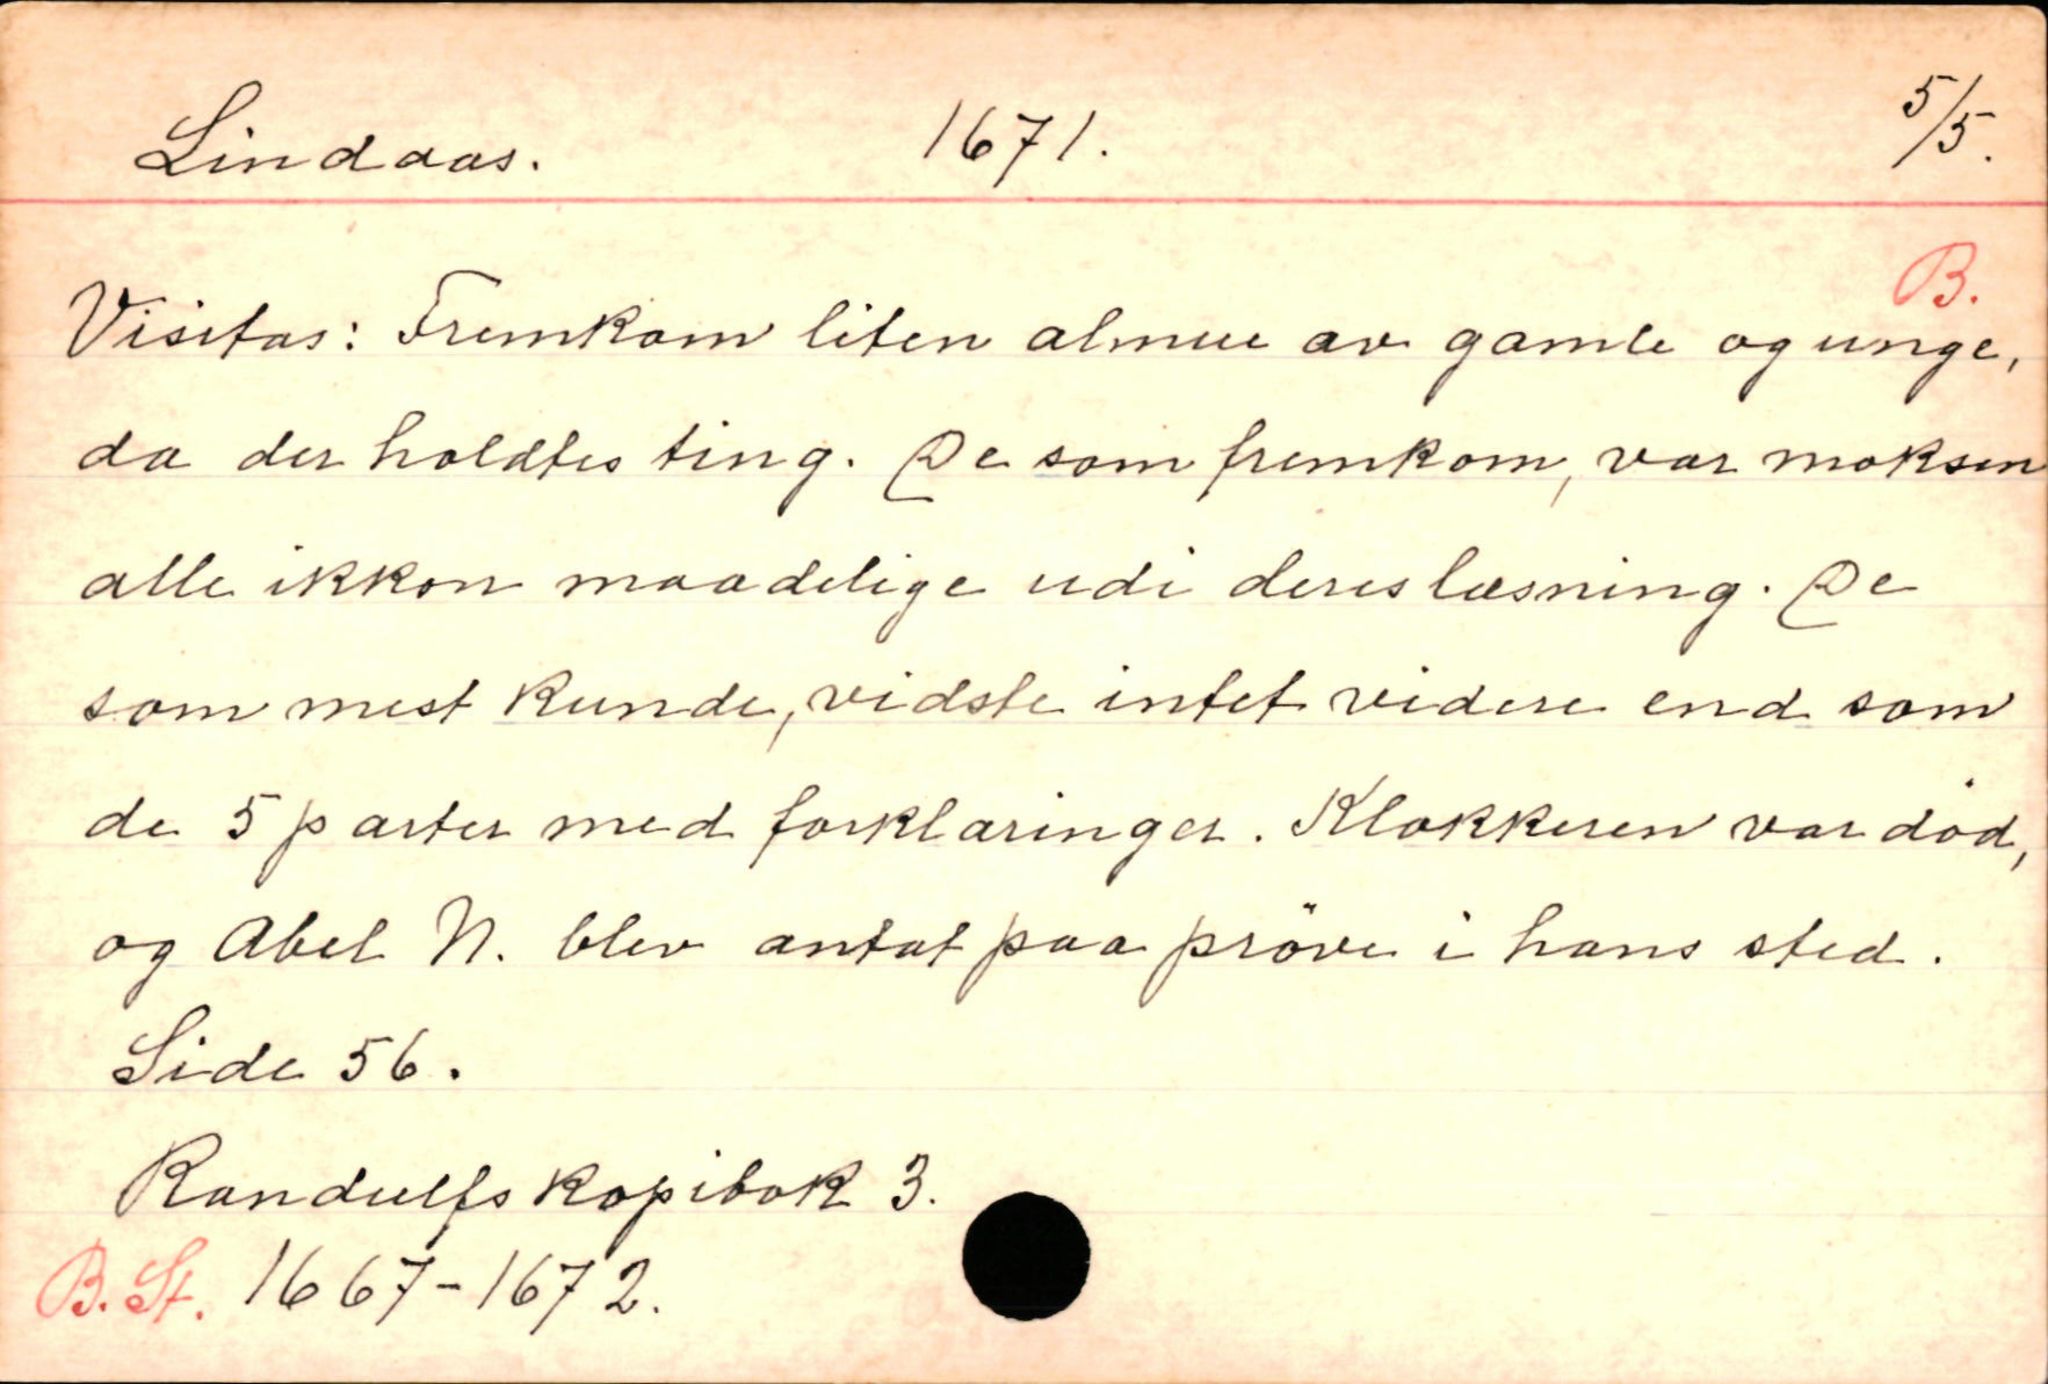 Lindaas. 1671. 5/5.
B.
Visitas: Fremkom liten almue av gamle og unge,
da der holdtes ting. De som fremkom, var moksen
alle ikkon maadelige udi deres læsning. De
som mest kunde, vidste intet videre end som
de 5 parter med forklaringer. Klokkeren var död,
og Abel N. blev antat paa pröve i hans sted.
Side 56.
Randulfs kopibok 3.
B. St. 1667-1672.